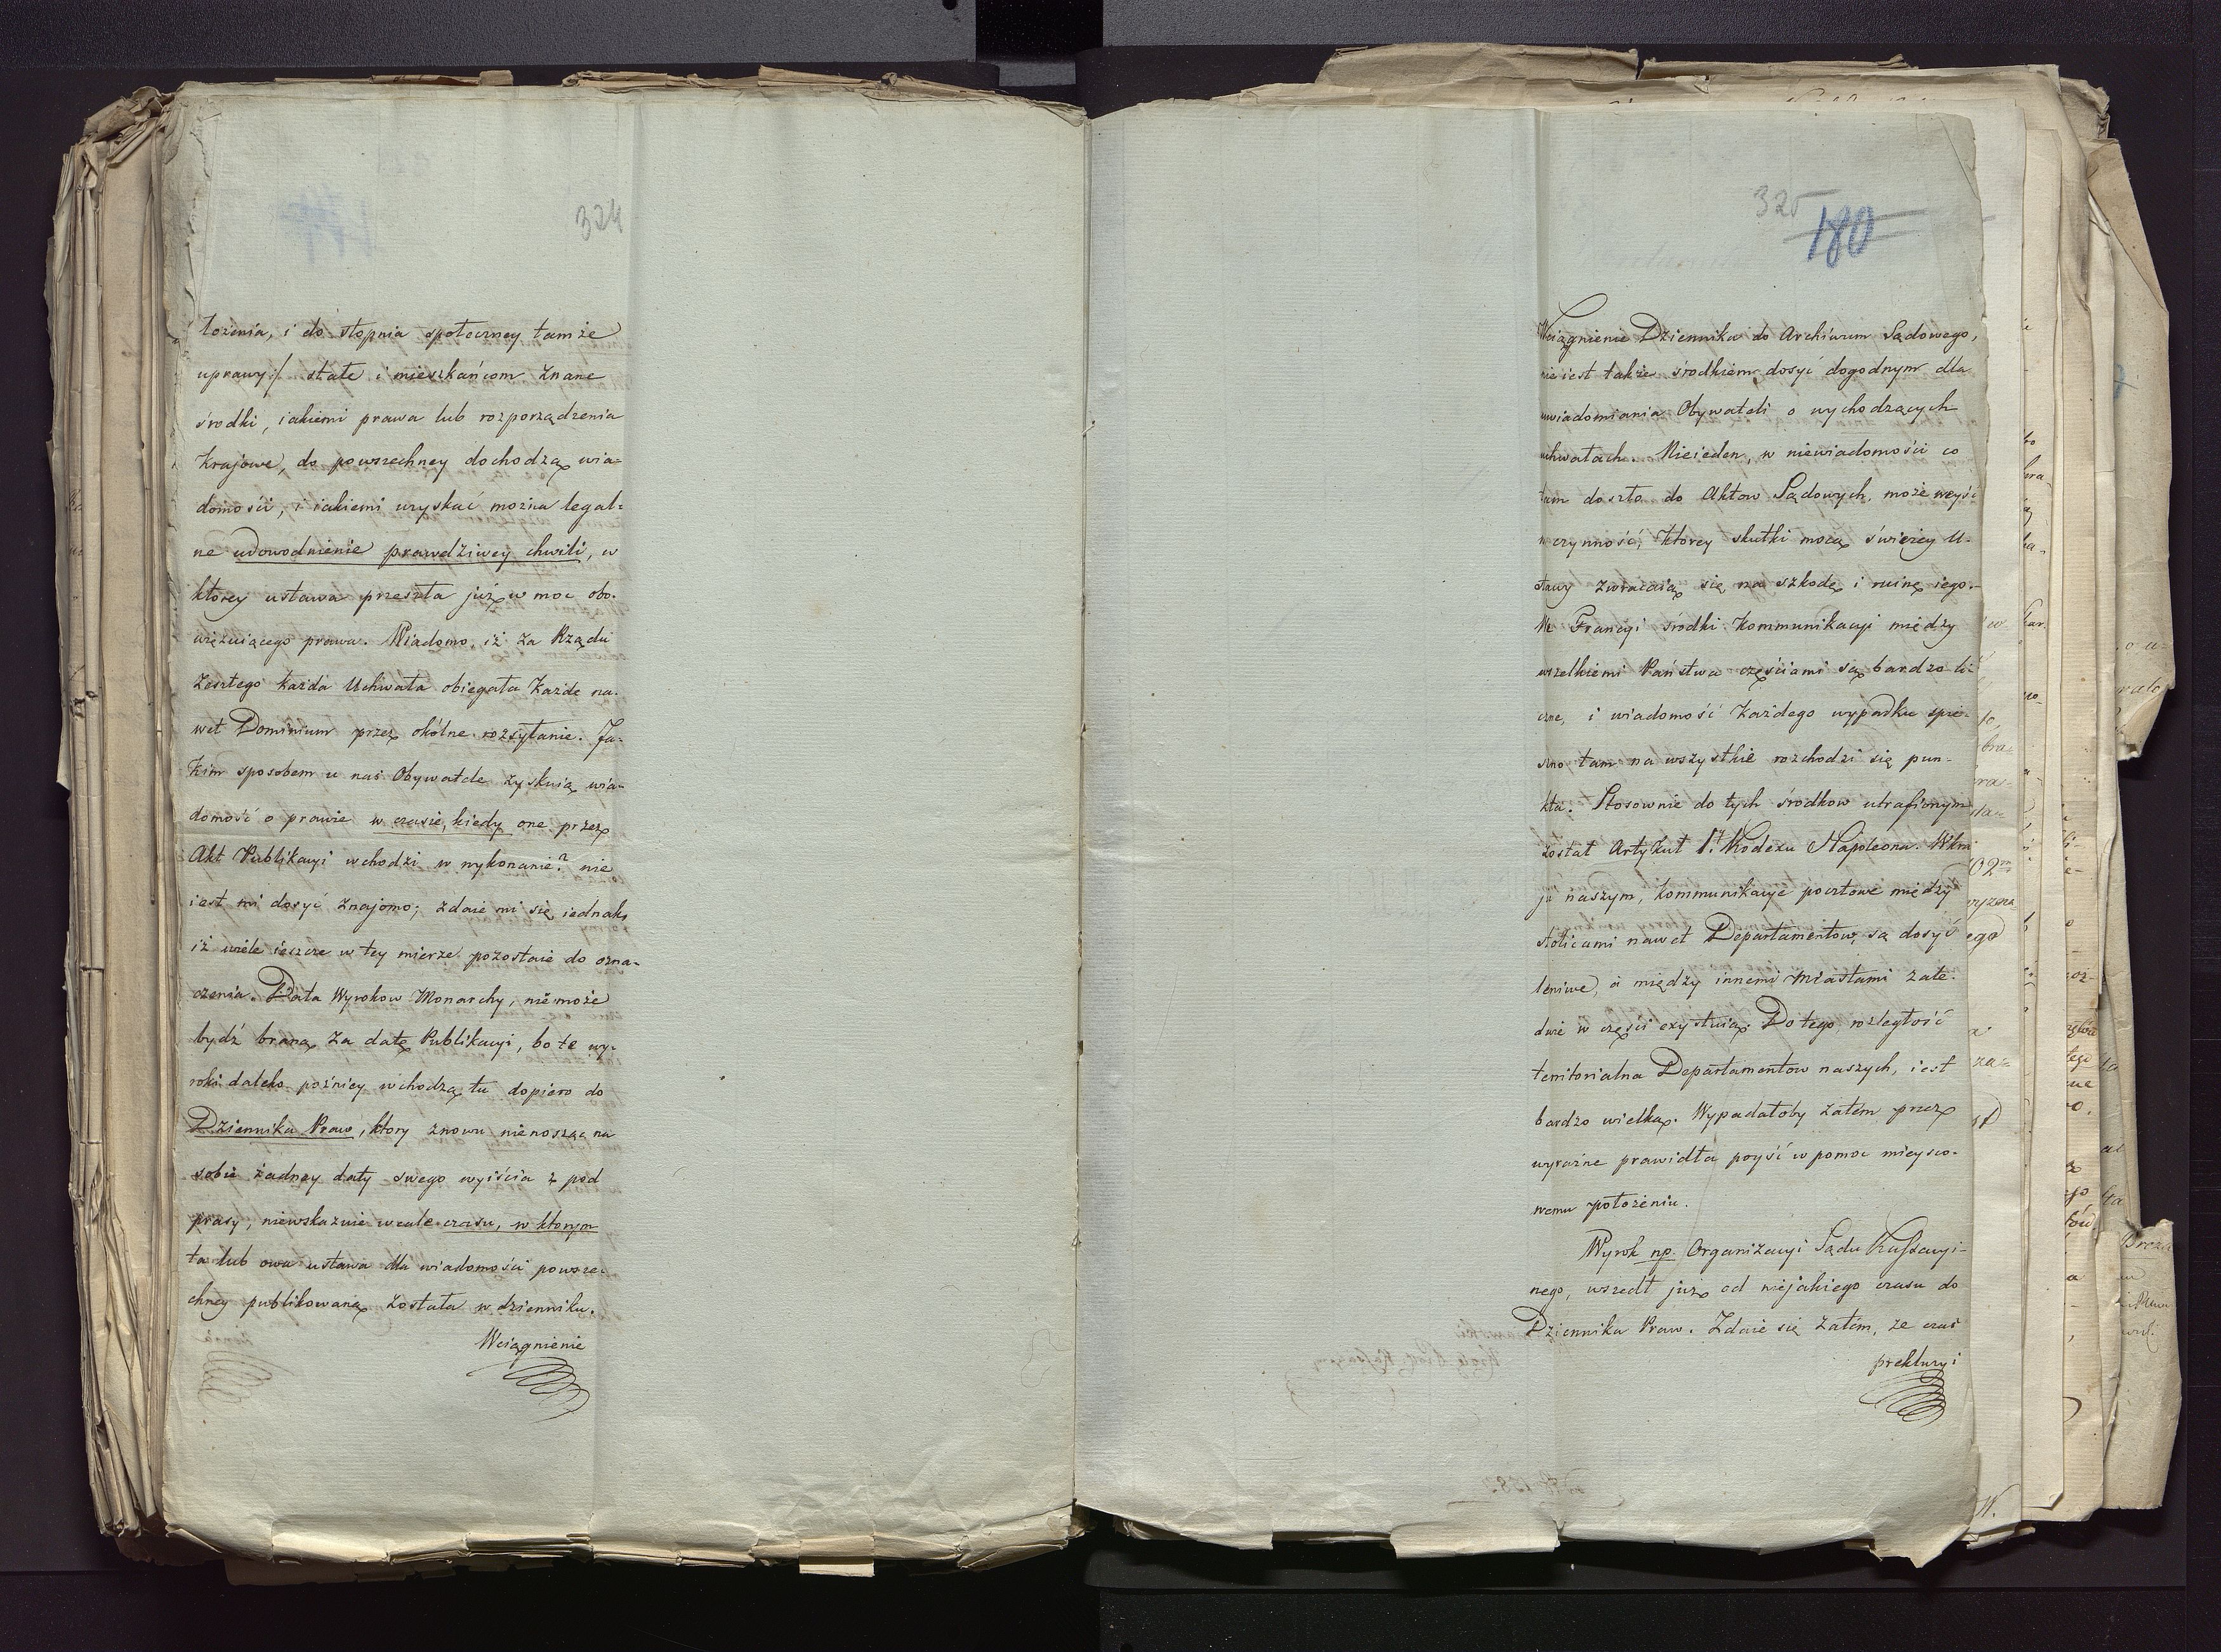 324
łożenia, i do stopnia społeczney tamże
uprawy:/ stałe i mieszkańcom znane
środki, iakiemi prawa lub rozporządzenia
Krajowe, do powszechney dochodzą wia-
domości, i iakiemi uzyskać można legal-
ne udowodnienie prawdziwey chwili, w
którey ustawa przeszła już w moc obo-
wiązuiącego prawa. Wiadomo, iż za Rządu
Zeszłego każda Uchwała obiegała każde na-
wet Dominium przez okólne rozsyłanie. Ja-
kim sposobem u nas Obywatele zyskuią wia-
domość o prawie w czasie, kiedy one przez
Akt Publikacyi wchodzi w wykonanie? nie
iest mi dosyć znajomo; zdaie mi się iednak,
iż wiele ieszcze w tey mierze pozostaie do ozna-
czenia. Data Wyrokow Monarchy, nie może
bydź braną za datę Publikacyi, bo te wy-
roki daleko poźniey wchodzą tu dopiero do
Dziennika Praw, ktory znowu nienosząc na
sobie żadney daty swego wyiścia z pod
prasy, niewskazuie wcale czasu, w ktorym
ta lub owa ustawa dla wiadomości powsze-
chney publikowaną została w dzienniku.
Wciągnienie
325
180
Wciągnienie Dziennika do Archiwum Sądowego,
nie iest także środkiem dosyć dogodnym dla
uwiadomiania Obywateli o wychodzących
uchwałach. Nieieden, w niewiadomości co
tam doszło do Aktow Sądowych, może weyść
w czynność, ktorey skutki mocą świeżey U-
stawy zwracaią się na szkodę i ruinę iego.
We Francyi środki Kommunikacyi między
wszelkiemi Państwa częściami są bardzo li-
czne, i wiadomość każdego wypadku spie-
szno tam na wszystkie rozchodzi się pun-
kta. Stosownie do tych środkow utrafionym
został Artykuł 1. Kodexu Napoleona. W kra-
ju naszym, Kommunikacye pocztowe między
stolicami nawet Departamentow, są dosyć
leniwe, a między innemi Miastami zale-
dwie w części exystuią. Do tego rozległość
territorialna Departamentow naszych, iest
bardzo wielką. Wypadałoby zatem przez
wyraźne prawidła poyść w pomoc mieysco-
wemu położeniu.
Wyrok np. Organizacyi Sądu Kassacyi-
nego, wszedł już od niejakiego czasu do
Dziennika Praw. Zdaie się zatem, że czas
prekluzyi